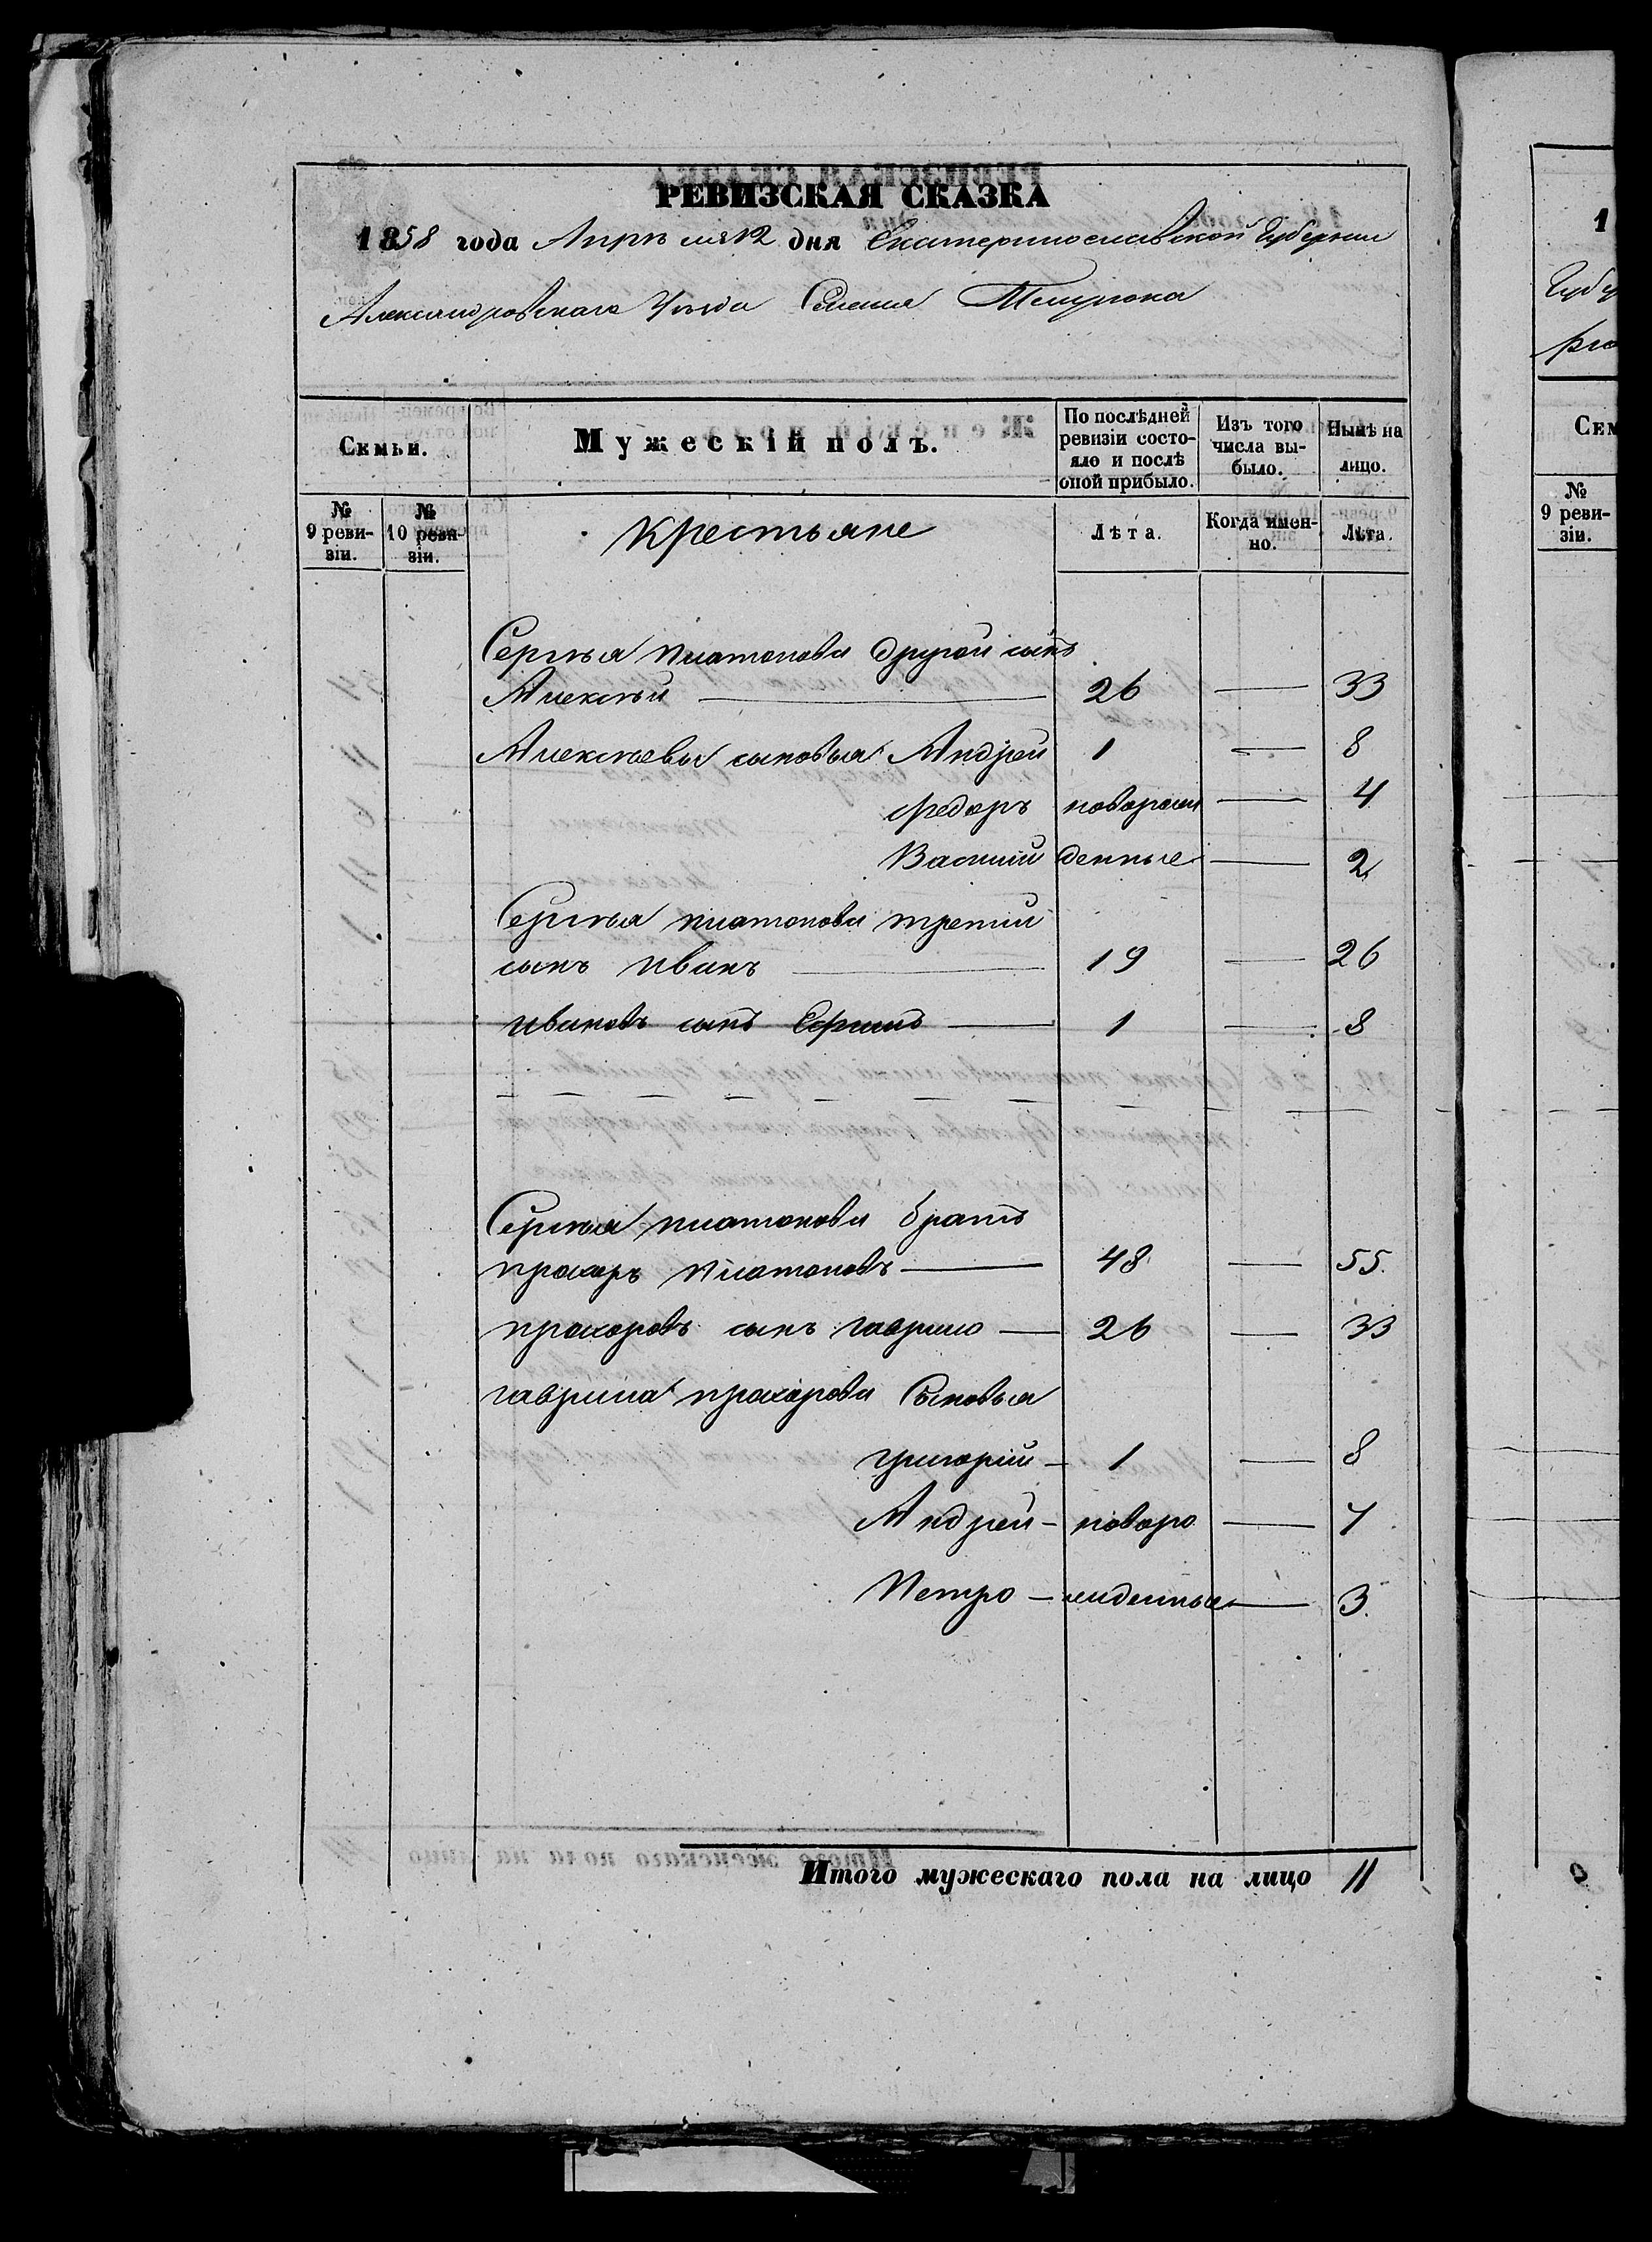 РЕВИЗСКАЯ СКАЗКА
1858 года Апрѣля 12 дня Екатеринославской Губернии
Александровскаго Уѣзда Селения Темрюка
Семьи. Мужескій полъ. По послѣдней ревизіи состояло и послѣ оной прибыло. Изъ того числа выбыло. Нынѣ на лицо.
№ 9 ревизіи. № 10 ревизіи. Крестьяне Лѣта. Когда именно. Лѣта.
Сергѣя Платонова другой сынъ
Алексѣй — 26 — 33
Алексѣевы сыновья Андрей 1 — 8
Федоръ новорож — 4
Василий денные — 2
Сергѣя платонова третий
сынъ Иванъ — 19 — 26
Ивановъ сынъ — 1 — 8
Сергѣя платонова братъ
прохоръ Платоновъ — 48 — 55.
прохоровъ сынъ гаврило — 26 — 33
гаврила прохорова Сыновья
григорий — 1 — 8
Андрей — новоро — 7
Петро — жденные — 3.
Итого мужескаго пола на лицо 11
1
Губе
Сем
№ 9 ревизіи.